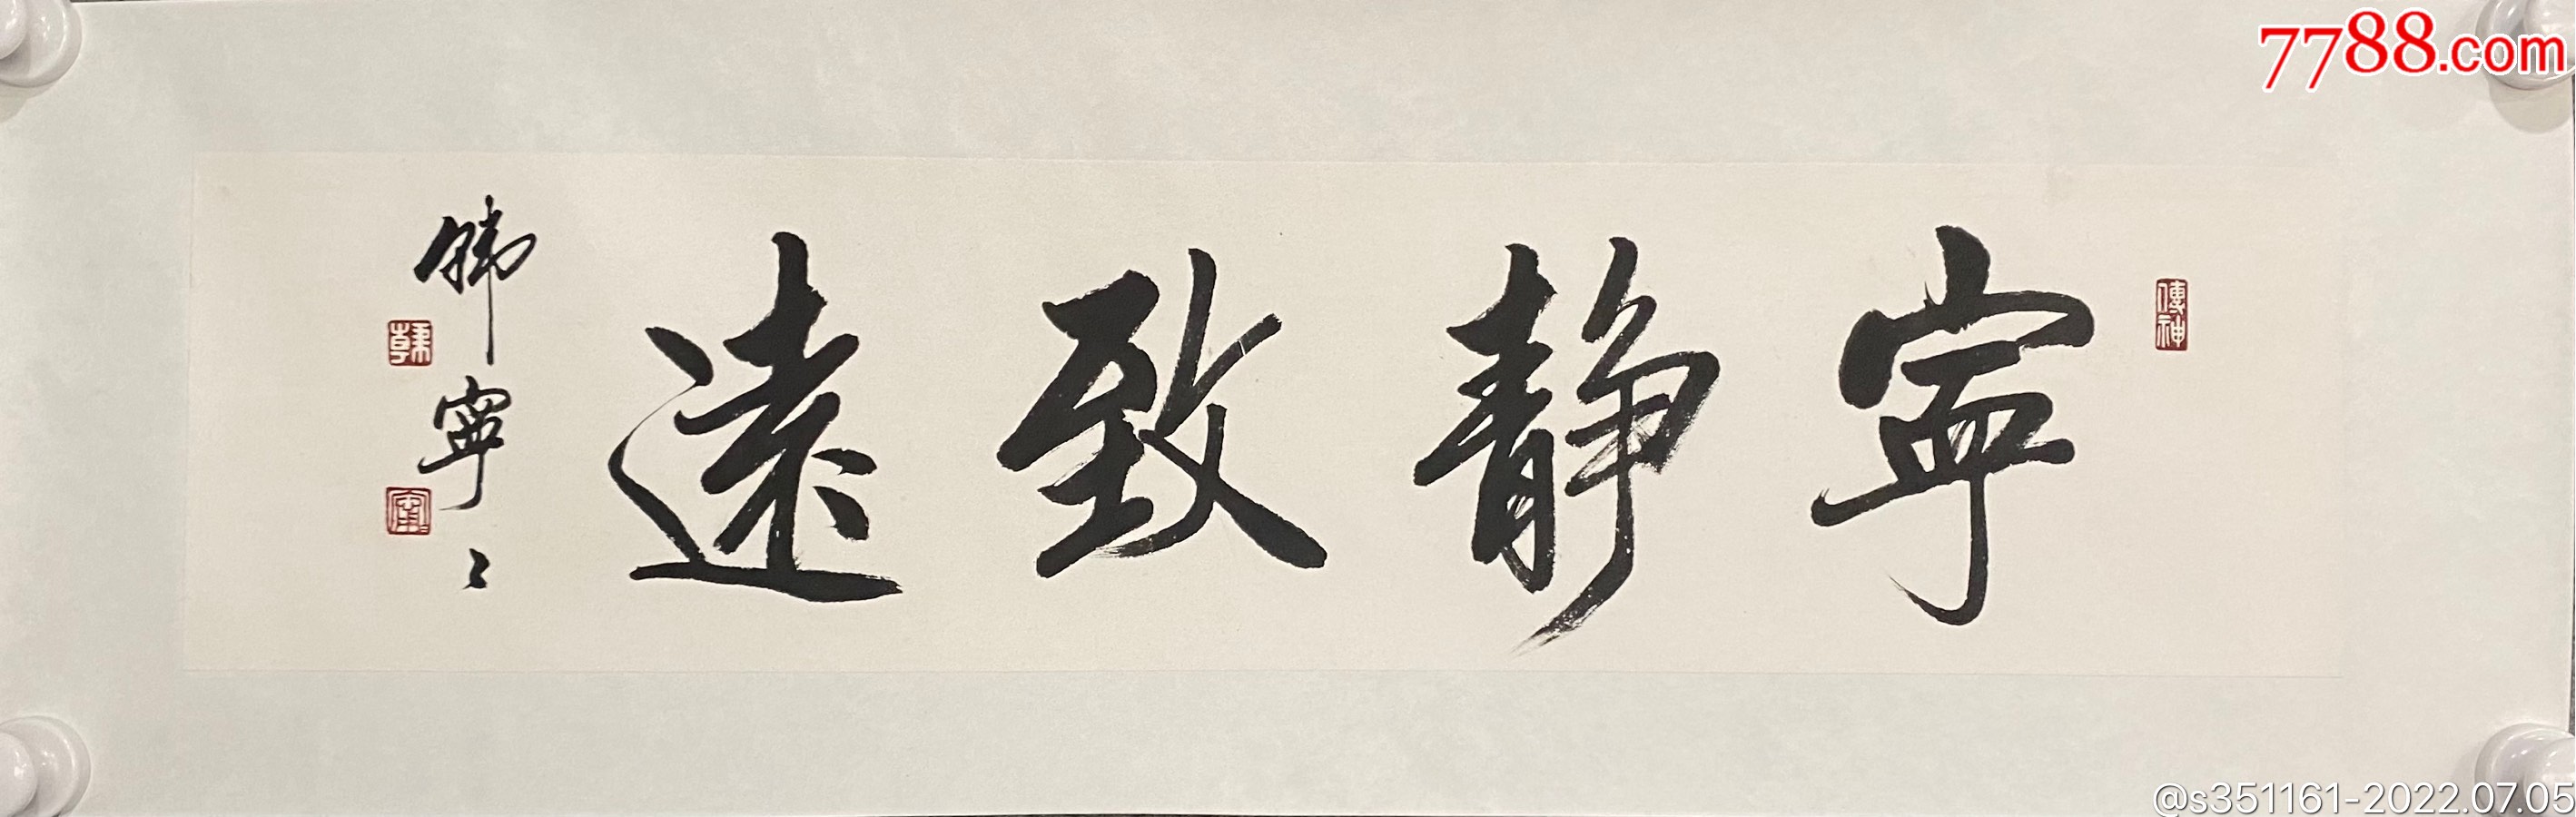 7788.com
傳神
寧静致遠
韩寧寧
@s351161-2022.07.05